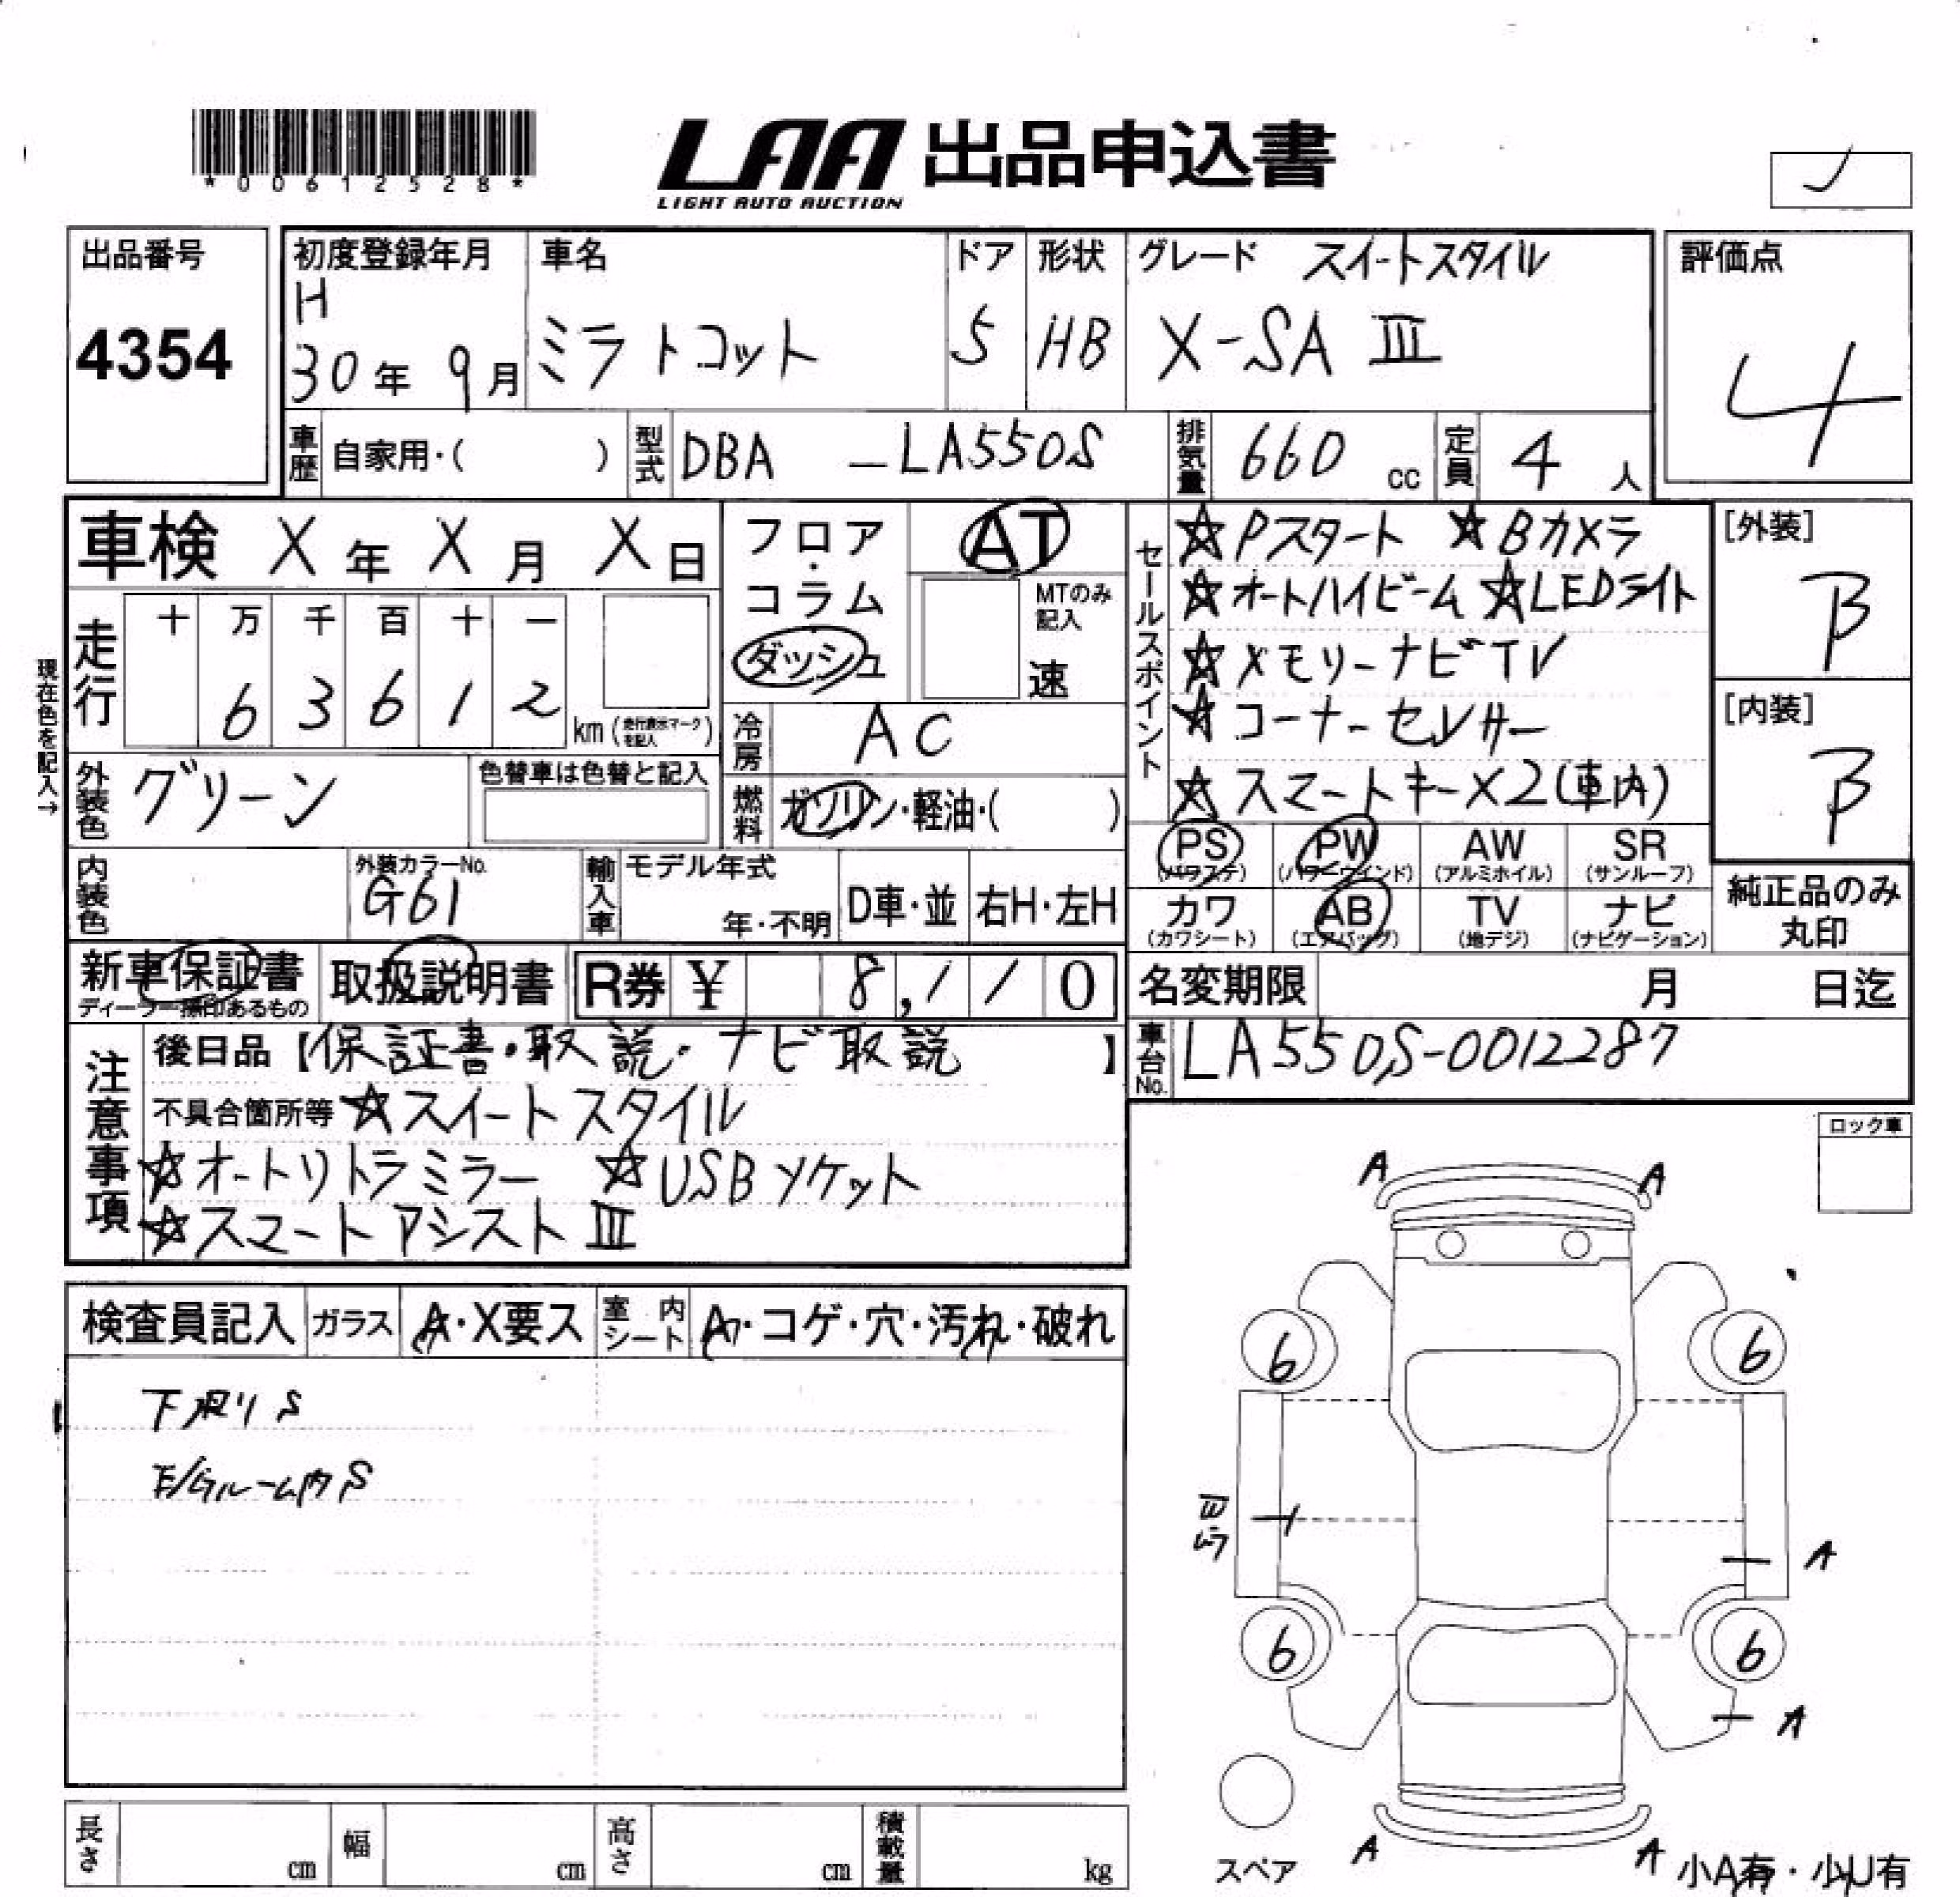 *00612528*
LAA 出品申込書
LIGHT AUTO AUCTION
出品番号
4354
初度登録年月
H
30年 9月
車名
ミラ トコット
ドア
5
形状
HB
グレード スイートスタイル
X-SA Ⅲ
評価点
4
車歴 自家用・( )
型式 DBA -LA550S
排気量 660 cc
定員 4 人
車検 X年 X月 X日
走行 十 万 千 百 十 一
6 3 6 1 2
km (走行表示マークを記入)
現在色を記入→
フロア・コラム
ダッシュ
AT
MTのみ記入
速
冷房 AC
燃料 ガソリン・軽油・( )
外装色 グリーン
色替車は色替と記入
内装色
外装カラーNo.
G61
輸入車
モデル年式
年・不明
D車・並
右H・左H
セールスポイント
☆Pスタート ☆Bカメラ
☆オートハイビーム ☆LEDライト
☆メモリーナビTV
☆コーナーセンサー
☆スマートキーX2(車内)
PS (パワステ)
PW (パワーウインド)
AW (アルミホイル)
SR (サンルーフ)
カワ (カワシート)
AB (エアバッグ)
TV (地デジ)
ナビ (ナビゲーション)
[外装]
B
[内装]
B
純正品のみ
丸印
新車保証書
ディーラー捺印あるもの
取扱説明書
R券 ¥ 8,110
名変期限 月 日迄
車台No. LA550S-0012287
注意事項
後日品【保証書・取説・ナビ取説】
不具合箇所等 ☆スイートスタイル
☆オートリトラミラー ☆USBソケット
☆スマートアシストⅢ
ロック車
検査員記入
ガラス A・X要ス
室内シート A・コゲ・穴・汚れ・破れ
下廻りS
E/Gルーム内S
A A
6 6
A
6 6
A
A A
スペア
小A有・小U有
長さ cm
幅 cm
高さ cm
積載量 kg